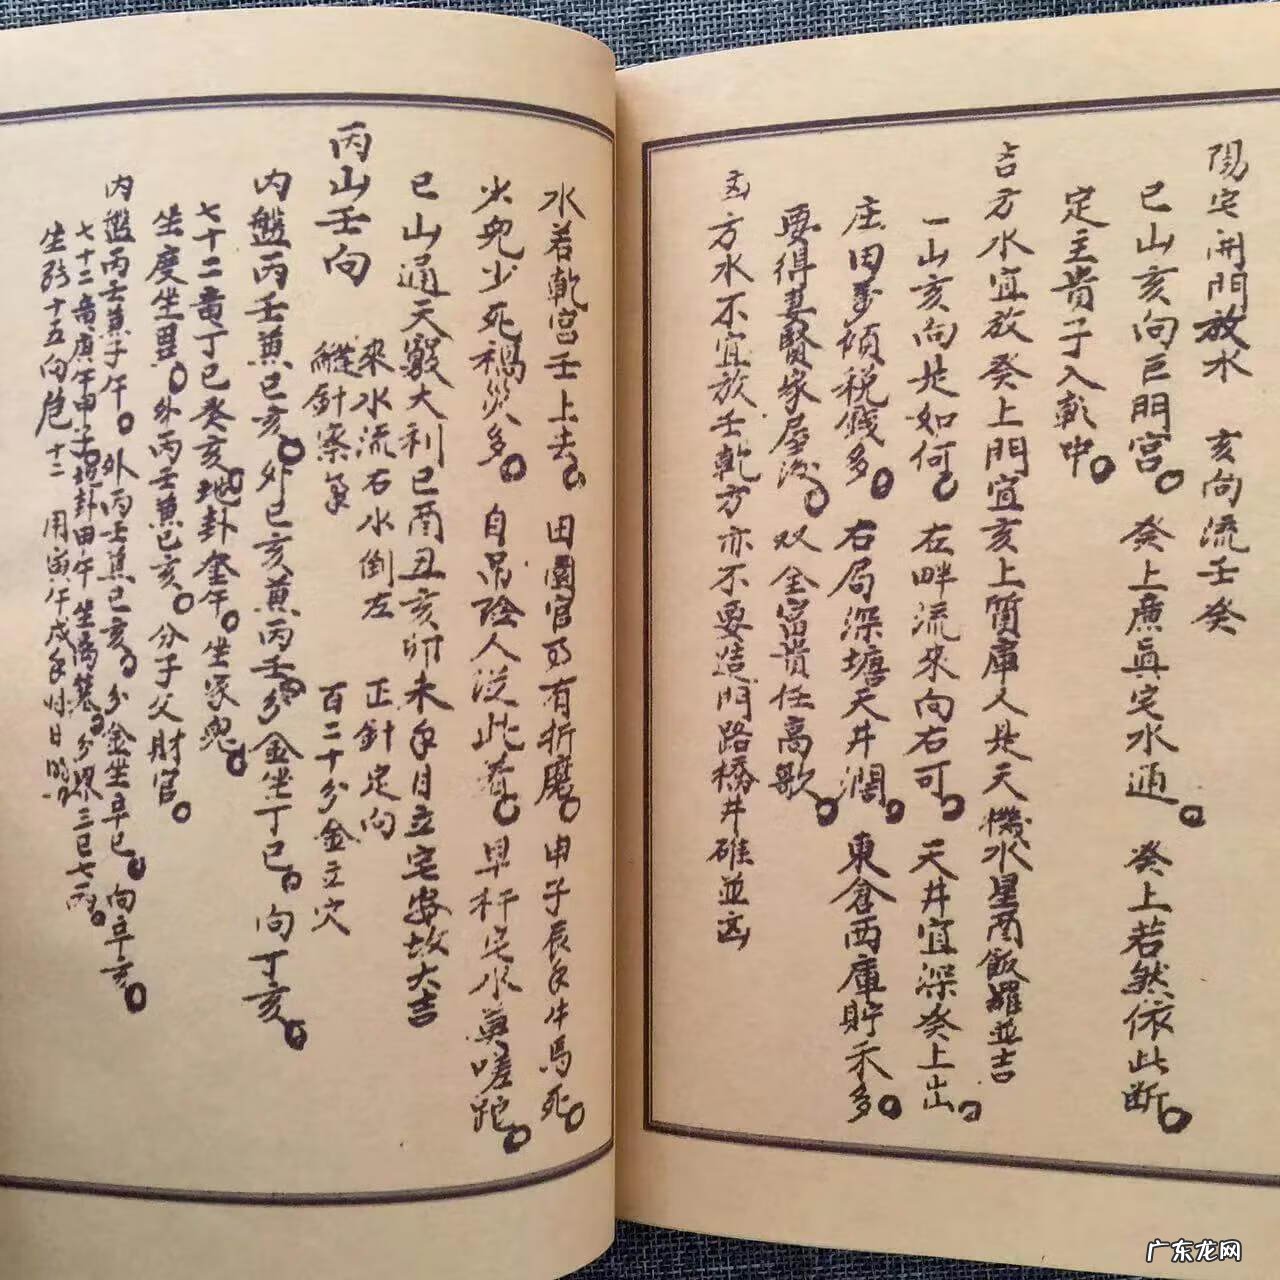 陽宅開門放水　亥向流壬癸
巳山亥向巨門宮。癸上廉貞宅水通。癸上若然依此断。
定主貴子入乾中。
吉方水宜放癸上門宜亥上質庫人是天機水星商飯羅並吉
一山亥向是如何。左畔流來向右可。天井宜深癸上出。
庄田萬傾税錢多。右局深塘天井濶。東倉西庫貯禾多。
要得妻賢家屋。双全富贵任高歌。
凶方水不宜放壬乾方亦不要造門路橋井碓並凶
水若乾宮壬上去。田園官有折磨。申子辰年牛馬死。
少死禍災多。自吊陰人從此着。早杆宅水莫嗟跎。
巳山通天竅大利巳酉丑亥卯未年月立宅安故大吉
丙山壬向
來水流右水倒左　正針定向
縫針察氣　百二十分金立穴
内盤丙壬兼巳亥。外巳亥兼丙壬。分金坐丁巳。向丁亥。
七十二竜丁巳癸亥。地卦奎午。坐家。
坐度坐。外丙壬兼巳亥。分子父財官。
内盤丙壬兼子午。外丙壬兼巳亥。分金坐辛巳。向辛亥。
七十二竜庚午甲子。地卦田午坐离墓。分界三巳七丙。
坐張十五向危十二　用寅午戌年月日時。
广东龙网